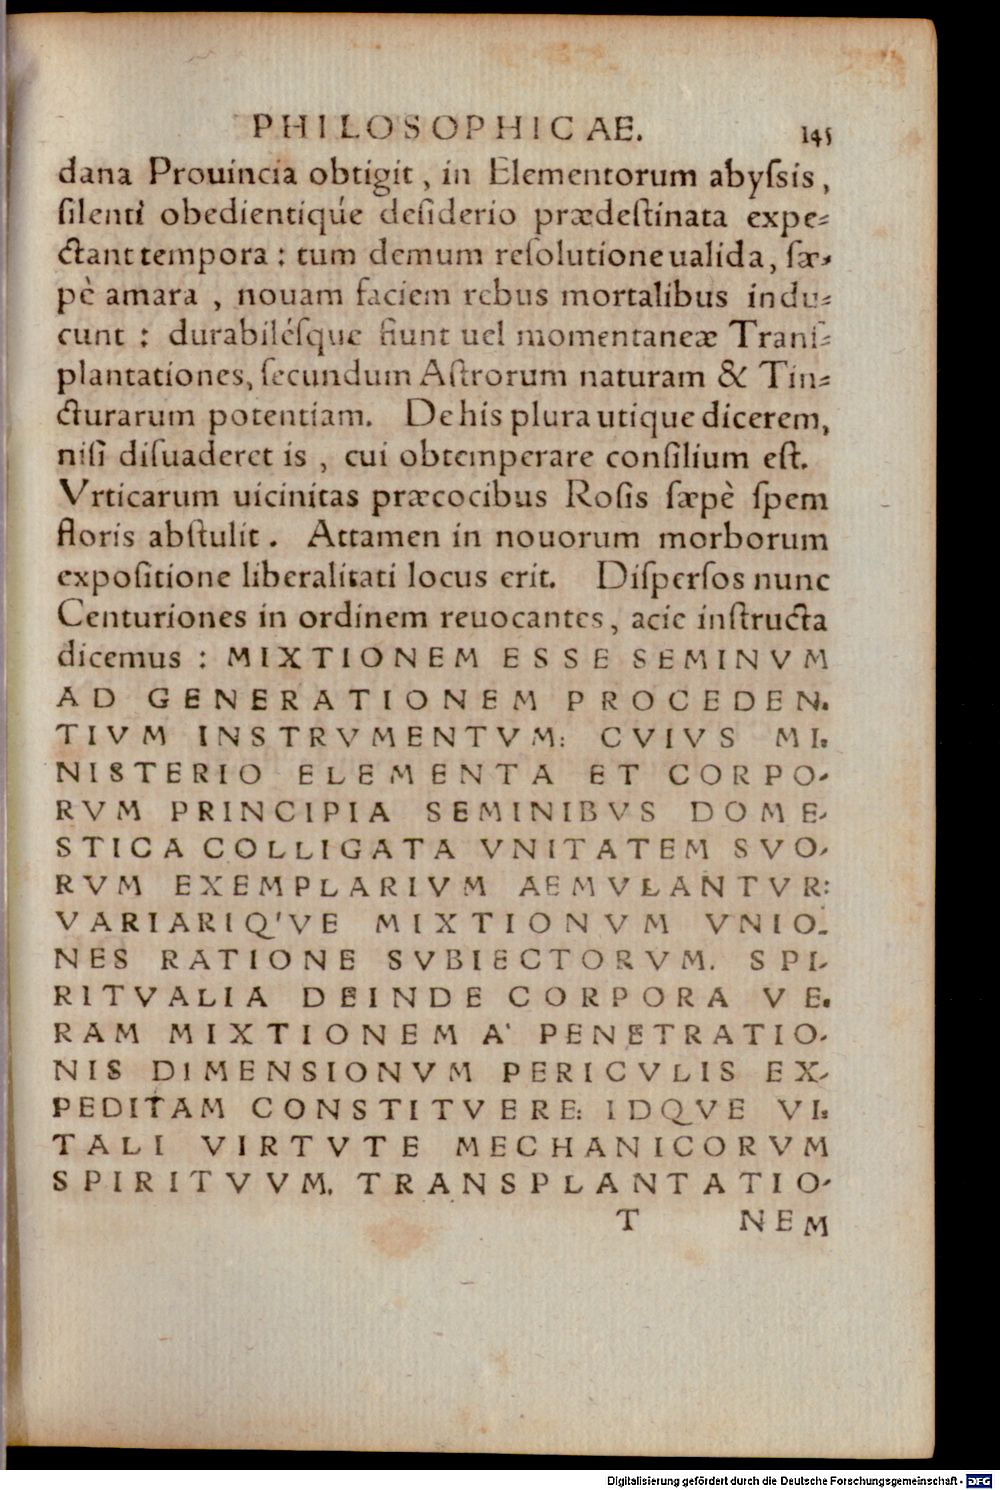 PHILOSOPHICAE. 145
dana Prouincia obtigit, in Elementorum abyſsis,
ſilenti obedientiqúe deſiderio prædeſtinata expe-
ctant tempora: tum demum reſolutione ualida, ſæ-
pè amara, nouam faciem rebus mortalibus indu-
cunt: durabiléſque fiunt uel momentaneæ Tranſ-
plantationes, ſecundum Aſtrorum naturam & Tin-
cturarum potentiam. De his plura utique dicerem,
niſi diſuaderet is, cui obtemperare conſilium eſt.
Vrticarum uicinitas præcocibus Roſis ſæpè ſpem
floris abſtulit. Attamen in nouorum morborum
expoſitione liberalitati locus erit. Diſperſos nunc
Centuriones in ordinem reuocantes, acie inſtructa
dicemus: MIXTIONEM ESSE SEMINVM
AD GENERATIONEM PROCEDEN-
TIVM INSTRVMENTVM: CVIVS MI-
NISTERIO ELEMENTA ET CORPO-
RVM PRINCIPIA SEMINIBVS DOME-
STICA COLLIGATA VNITATEM SVO-
RVM EXEMPLARIVM AEMVLANTVR:
VARIARIQ'VE MIXTIONVM VNIO-
NES RATIONE SVBIECTORVM. SPI-
RITVALIA DEINDE CORPORA VE-
RAM MIXTIONEM A' PENETRATIO-
NIS DIMENSIONVM PERICVLIS EX-
PEDITAM CONSTITVERE: IDQVE VI-
TALI VIRTVTE MECHANICORVM
SPIRITVVM. TRANSPLANTATIO-
T NEM
Digitalisierung gefördert durch die Deutsche Forschungsgemeinschaft - DFG